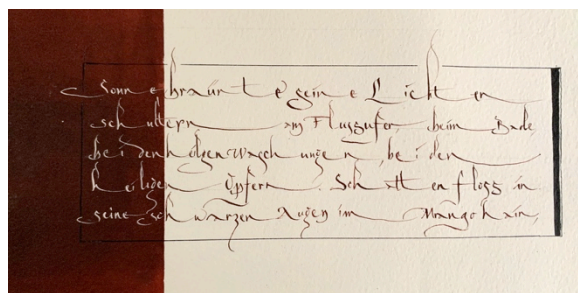 Sonne bräunte seine Lichten
schultern am Flussufer, beim Bade,
bei den heiligen Waschungen, bei den
heiligen Opfern. Schatten floss in
seine schwarzen Augen im Mangohain,